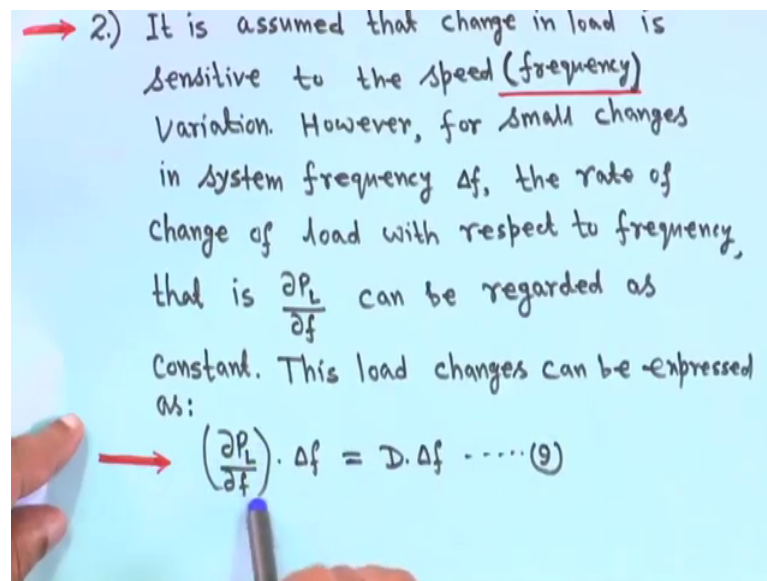 2.) It is assumed that change in load is
sensitive to the speed (frequency)
Variation. However, for small changes
in system frequency Δf, the rate of
change of load with respect to frequency,
that is ∂P_L/∂f can be regarded as
Constant. This load changes can be expressed
as:
(∂P_L/∂f) . Δf = D. Δf ..... (9)